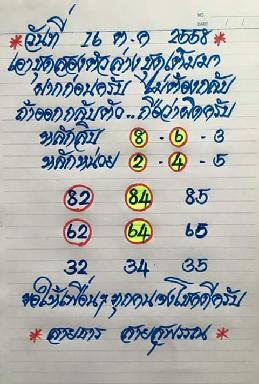 NO.
DATE / /
*วันที่ 16 ต.ค 2568*
เอาชุดสองตัวล่างชุดเดิมมา
ฝากก่อนครับ ไม่ต้องกลับ
ถ้าออกกลับตัว..ถือว่าผิดครับ
หลักสิบ 8 - 6 - 3
หลักหน่วย 2 - 4 - 5
82 84 85
62 64 65
32 34 35
ขอให้เพื่อนๆทุกคนจงโชคดีครับ
* สายธาร สายสุพรรณ *